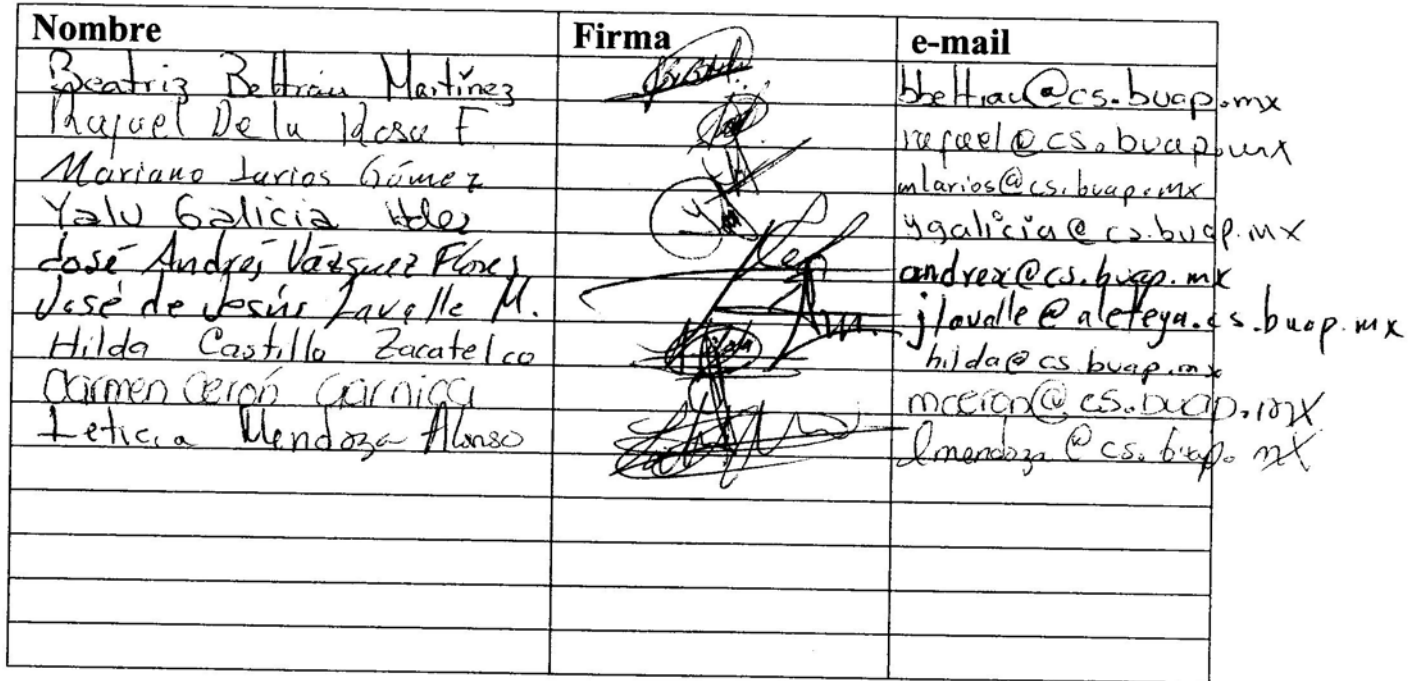 Nombre Firma e-mail
Beatriz Beltrán Martínez bbeltran@cs.buap.mx
Rafael De la Rosa F rafael@cs.buap.mx
Mariano Larios Gómez mlarios@cs.buap.mx
Yalu Galicia Hdez ygalicia@cs.buap.mx
José Andrés Vázquez Flores andrex@cs.buap.mx
José de Jesús Lavalle M. jlavalle@aleteya.cs.buap.mx
Hilda Castillo Zacatelco hilda@cs.buap.mx
Carmen Cerón Garnica mceron@cs.buap.mx
Leticia Mendoza Alonso lmendoza@cs.buap.mx